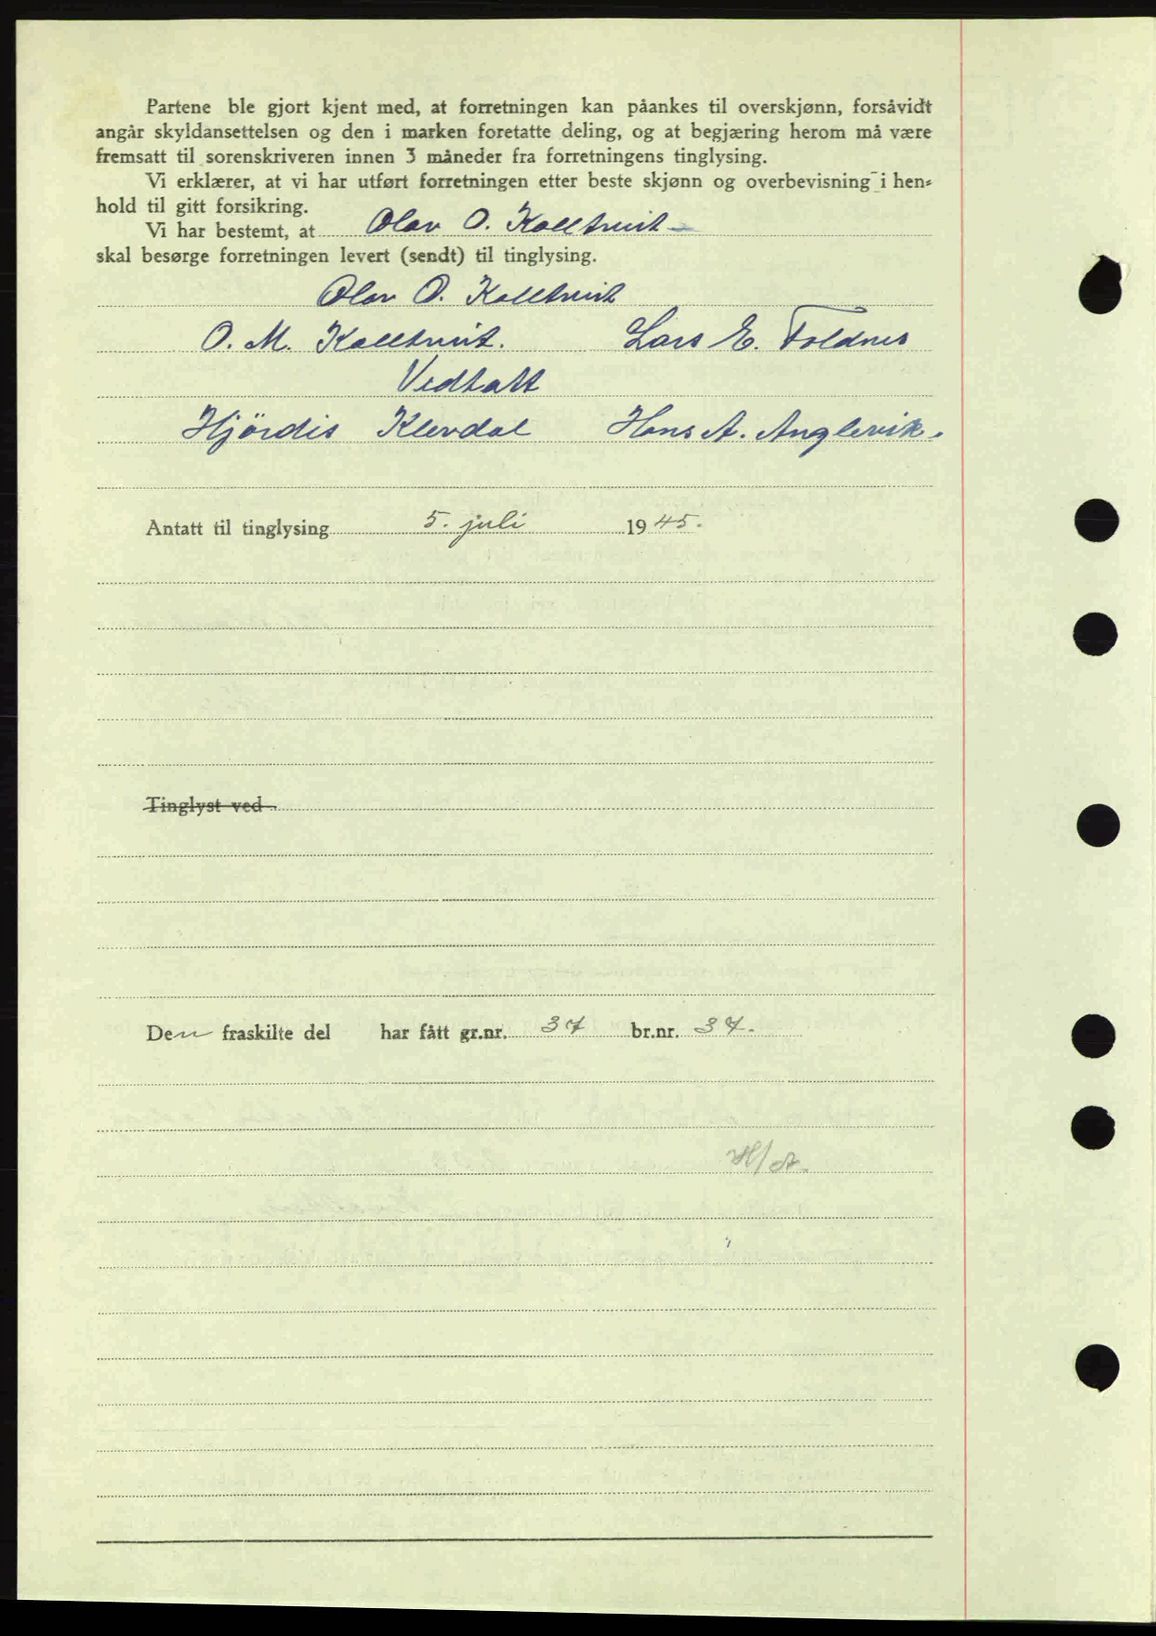 Partene ble gjort kjent med, at forretningen kan påankes til overskjønn, forsåvidt
angår skyldansettelsen og den i marken foretatte deling, og at begjæring herom må være
fremsatt til sorenskriveren innen 3 måneder fra forretningens tinglysing.
Vi erklærer, at vi har utført forretningen etter beste skjønn og overbevisning i hen-
hold til gitt forsikring.
Vi har bestemt, at Olav O. Kalltveit
skal besørge forretningen levert (sendt) til tinglysing.
Olav O. Kalltveit
O. M. Kalltveit. Lars E. Foldnes
Vedtatt
Hjördis Klevdal Hans A. Anglevik.
Antatt til tinglysing 5. juli 1945.
Tinglyst ved
Den fraskilte del har fått gr.nr. 37 br.nr. 37.
H/A.